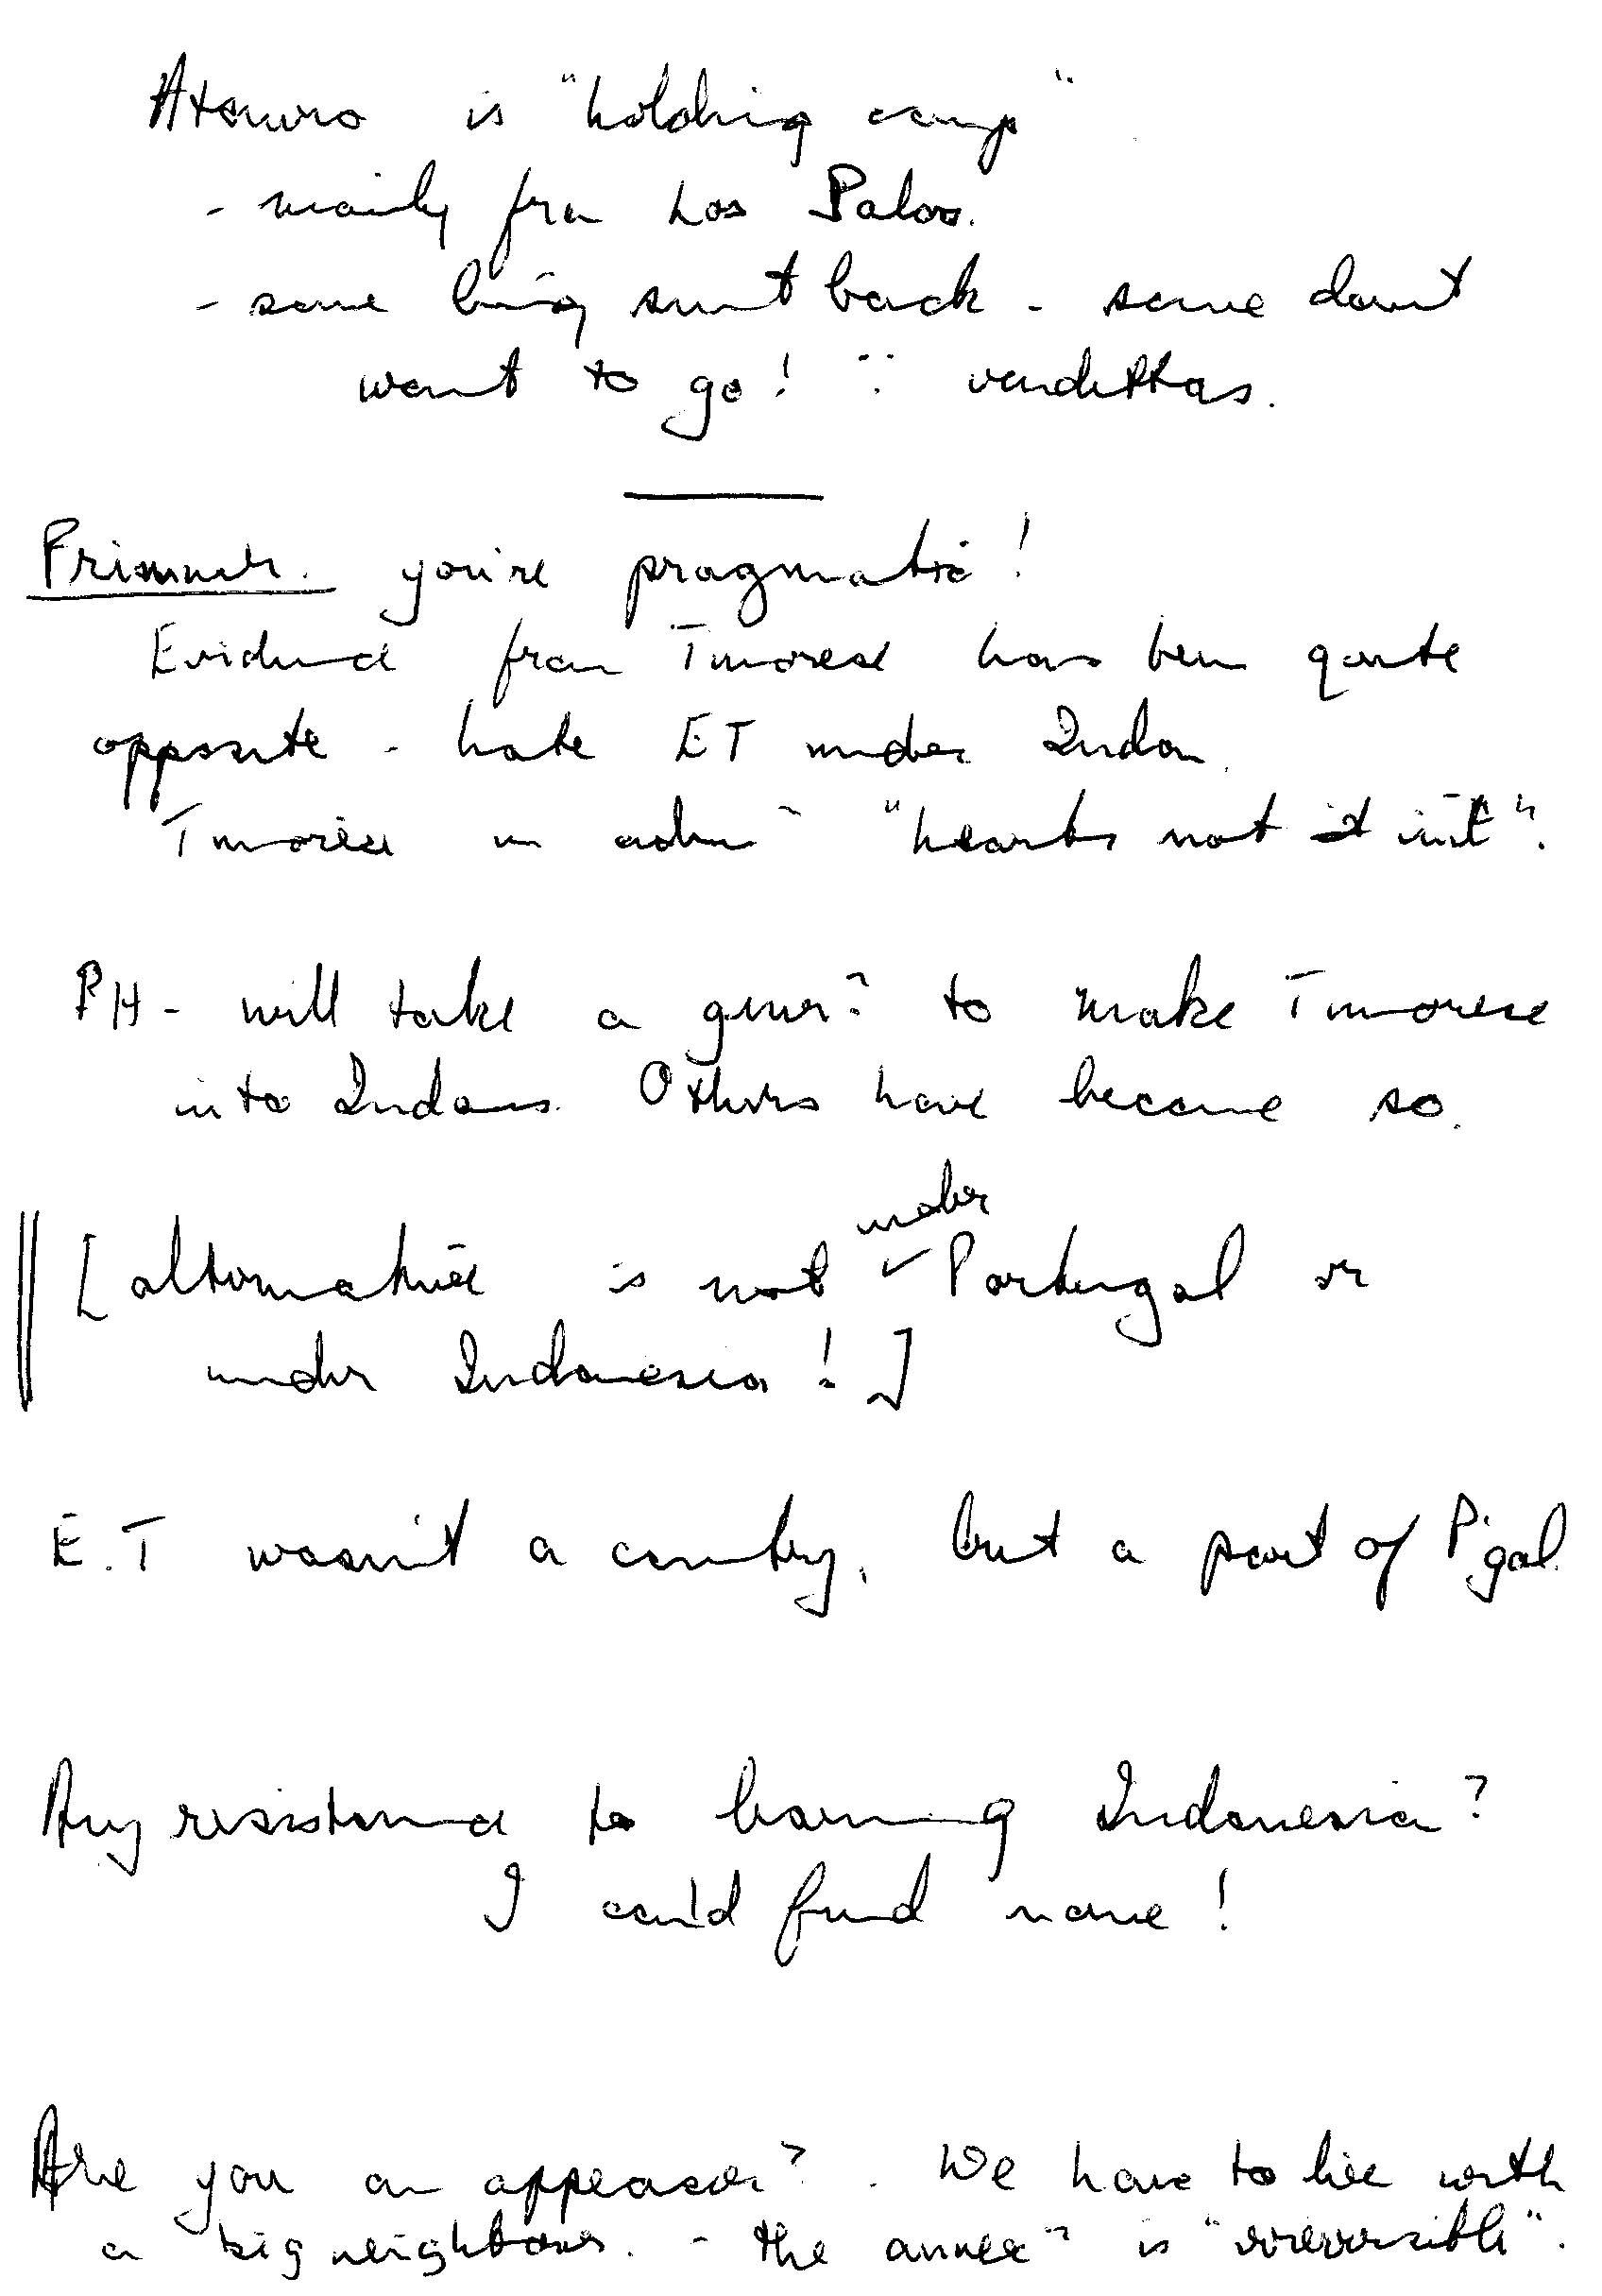 Atauro is "holding camp"
- mainly from Los Palos.
- some being sent back - some don't
want to go! ∵ vendettas.
Primmer. you're pragmatic!
Evidence from Timorese has been quite
opposite - hate ET under Indon.
Timorese in admin "hearts not in it".
PH - will take a gener⁠ⁿ to make Timorese
into Indons. Others have become so.
under
[alternative is not ✓ Portugal or
under Indonesia!]
E.T wasn't a country, but a part of P'gal.
Any resistance to learning Indonesian?
I could find none!
Are you an appeaser? . We have to live with
a big neighbour. - the annexⁿ is "irreversible".